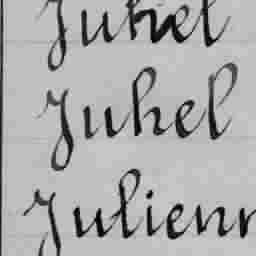 Juhel
Juhel
Julienn